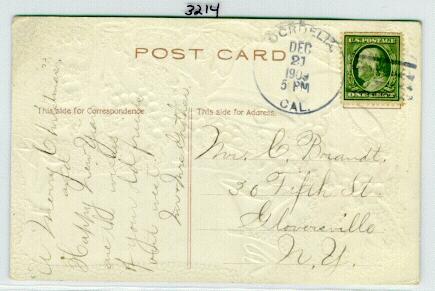 3214
POST CARD
CORDELIA
DEC
21
1909
5 PM
CAL.
U.S. POSTAGE
This side for Correspondence.
This side for Address.
A Merry Christmas
and
Happy New Year
are the wishes
of your old friend
Mrs. C. Brandt.
30 Fifth St.
Gloversville
N.Y.